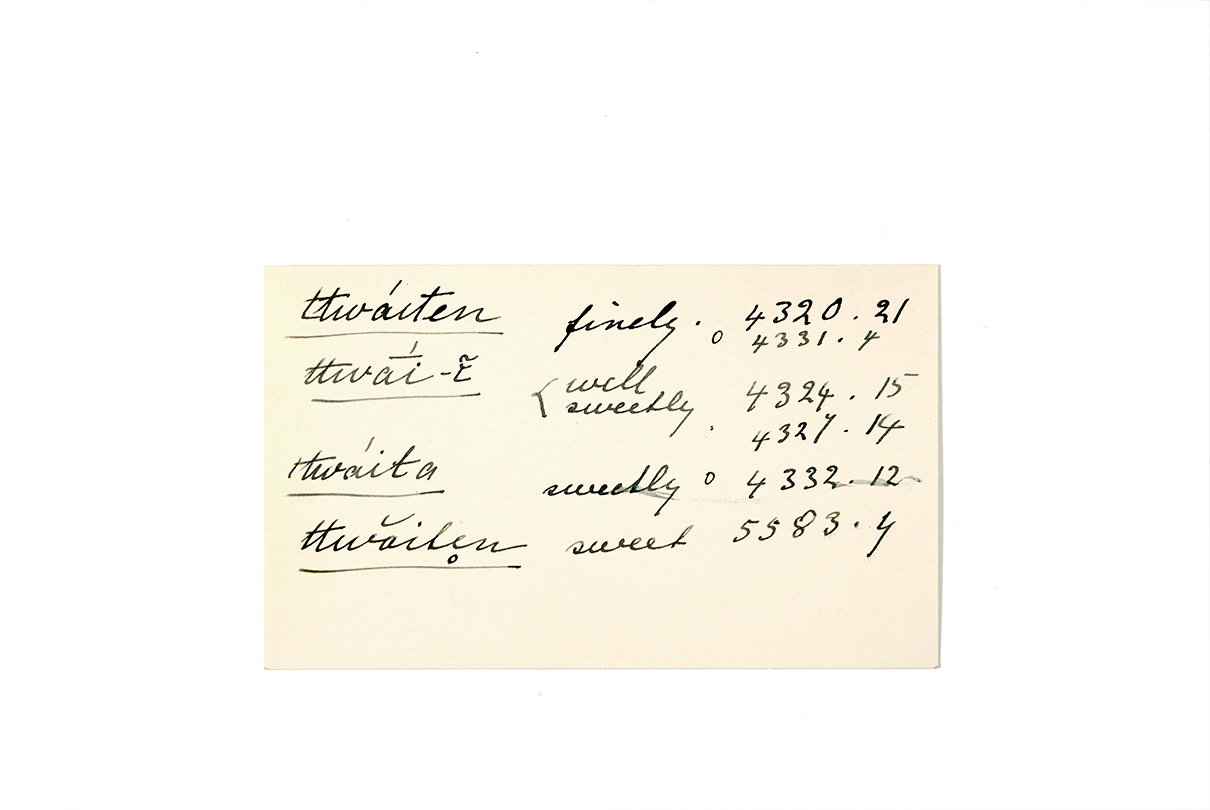 ttwáiten finely. 4320.21
o 4331.4
ttwā́ī-ẽ { well 4324.15
sweetly
. 4327.14
ttwáita sweetly o 4332.12
ttwăitẹn sweet 5583.4